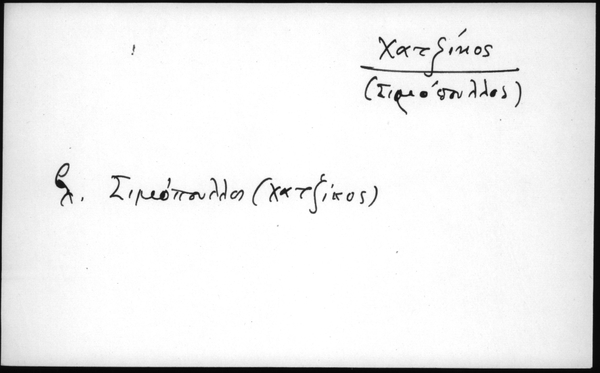 Χατζίκος
(Σιμόπουλλος)
βλ. Σιμόπουλλος (Χατζίκος)